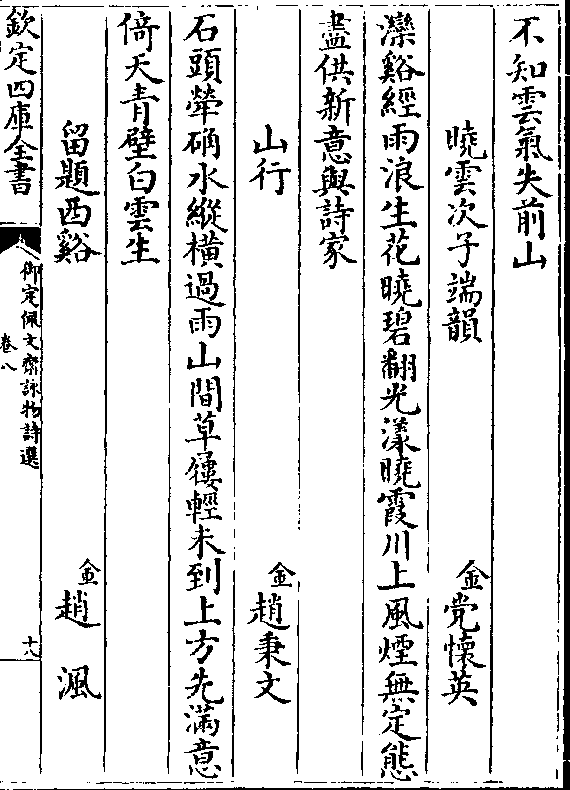 不知雲氣失前山
曉雲次子端韻　金党懷英
灤谿經雨浪生花曉碧翻光漾曉霞川上風煙無定態
盡供新意與詩家
山行　金趙秉文
石頭犖确水縱橫過雨山間草屨輕未到上方先滿意
倚天青壁白雲生
留題西谿　金趙渢
欽定四庫全書
御定佩文齋詠物詩選
卷八
十八